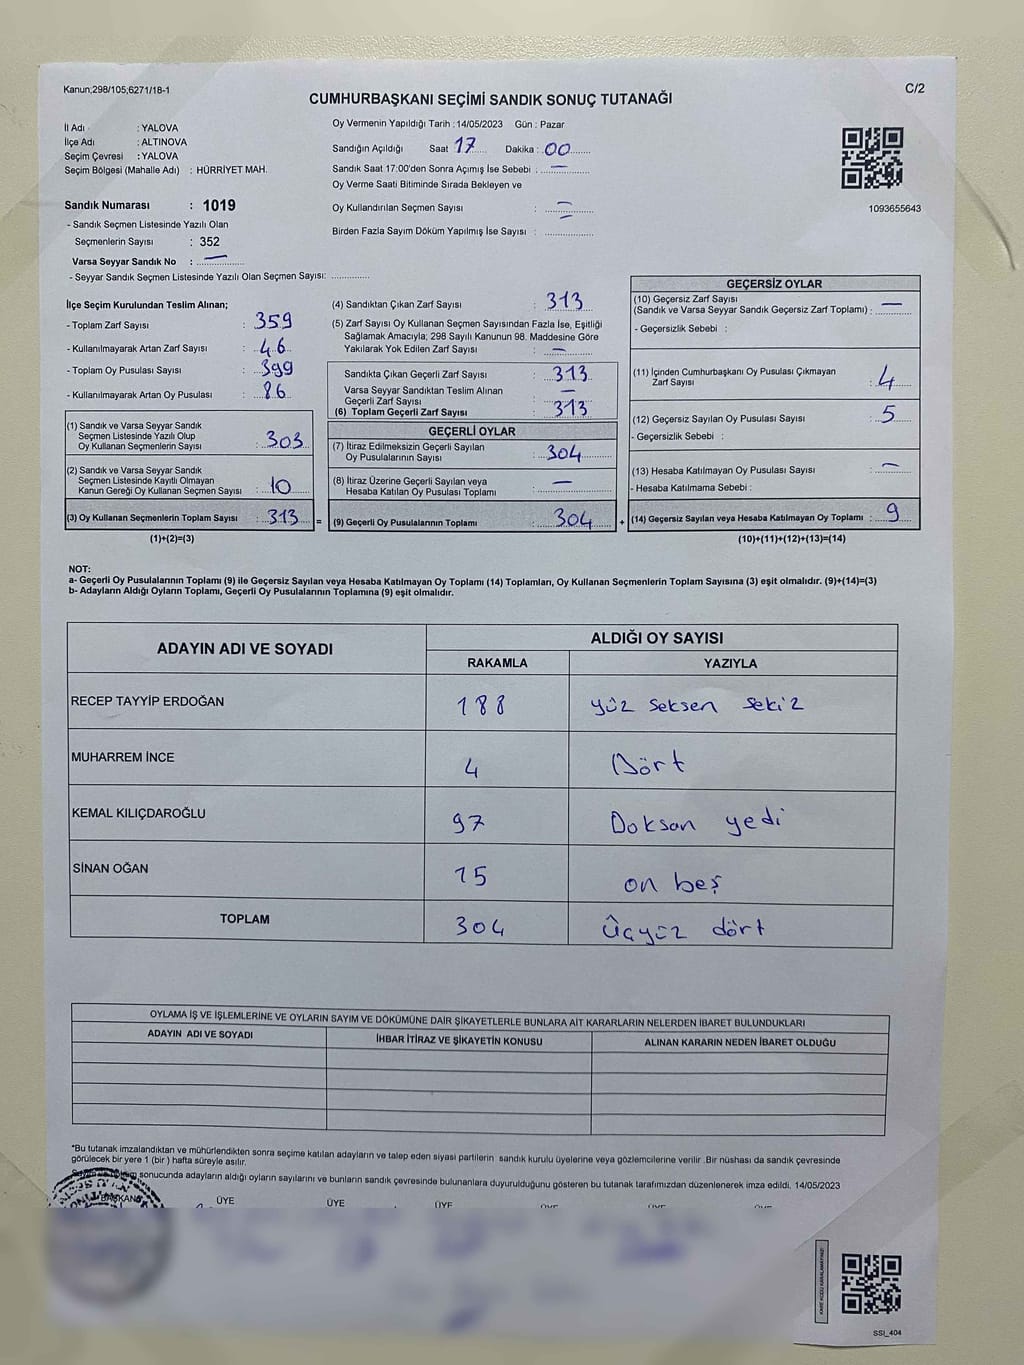 Kanun;298/105;6271/18-1
C/2
CUMHURBAŞKANI SEÇİMİ SANDIK SONUÇ TUTANAĞI
İl Adı : YALOVA
İlçe Adı : ALTINOVA
Seçim Çevresi : YALOVA
Seçim Bölgesi (Mahalle Adı) : HÜRRİYET MAH.
Sandık Numarası : 1019
- Sandık Seçmen Listesinde Yazılı Olan
Seçmenlerin Sayısı : 352
Varsa Seyyar Sandık No : —
- Seyyar Sandık Seçmen Listesinde Yazılı Olan Seçmen Sayısı: ..............
Oy Vermenin Yapıldığı Tarih : 14/05/2023 Gün : Pazar
Sandığın Açıldığı Saat 17 Dakika : 00
Sandık Saat 17:00'den Sonra Açımış İse Sebebi : —
Oy Verme Saati Bitiminde Sırada Bekleyen ve
Oy Kullandırılan Seçmen Sayısı : —
Birden Fazla Sayım Döküm Yapılmış İse Sayısı : ..............
1093655643
İlçe Seçim Kurulundan Teslim Alınan;
- Toplam Zarf Sayısı : 359
- Kullanılmayarak Artan Zarf Sayısı : 46
- Toplam Oy Pusulası Sayısı : 399
- Kullanılmayarak Artan Oy Pusulası : 86
(1) Sandık ve Varsa Seyyar Sandık
Seçmen Listesinde Yazılı Olup
Oy Kullanan Seçmenlerin Sayısı : 303
(2) Sandık ve Varsa Seyyar Sandık
Seçmen Listesinde Kayıtlı Olmayan
Kanun Gereği Oy Kullanan Seçmen Sayısı : 10
(3) Oy Kullanan Seçmenlerin Toplam Sayısı : 313 =
(1)+(2)=(3)
(4) Sandıktan Çıkan Zarf Sayısı : 313
(5) Zarf Sayısı Oy Kullanan Seçmen Sayısından Fazla İse, Eşitliği
Sağlamak Amacıyla; 298 Sayılı Kanunun 98. Maddesine Göre
Yakılarak Yok Edilen Zarf Sayısı : —
Sandıkta Çıkan Geçerli Zarf Sayısı : 313
Varsa Seyyar Sandıktan Teslim Alınan
Geçerli Zarf Sayısı : —
(6) Toplam Geçerli Zarf Sayısı : 313
GEÇERLİ OYLAR
(7) İtiraz Edilmeksizin Geçerli Sayılan
Oy Pusulalarının Sayısı : 304
(8) İtiraz Üzerine Geçerli Sayılan veya
Hesaba Katılan Oy Pusulası Toplamı : —
(9) Geçerli Oy Pusulalarının Toplamı : 304 +
GEÇERSİZ OYLAR
(10) Geçersiz Zarf Sayısı
(Sandık ve Varsa Seyyar Sandık Geçersiz Zarf Toplamı) : —
- Geçersizlik Sebebi :
(11) İçinden Cumhurbaşkanı Oy Pusulası Çıkmayan
Zarf Sayısı : 4
(12) Geçersiz Sayılan Oy Pusulası Sayısı : 5
- Geçersizlik Sebebi :
(13) Hesaba Katılmayan Oy Pusulası Sayısı : —
- Hesaba Katılmama Sebebi :
(14) Geçersiz Sayılan veya Hesaba Katılmayan Oy Toplamı : 9
(10)+(11)+(12)+(13)=(14)
NOT:
a- Geçerli Oy Pusulalarının Toplamı (9) ile Geçersiz Sayılan veya Hesaba Katılmayan Oy Toplamı (14) Toplamları, Oy Kullanan Seçmenlerin Toplam Sayısına (3) eşit olmalıdır. (9)+(14)=(3)
b- Adayların Aldığı Oyların Toplamı, Geçerli Oy Pusulalarının Toplamına (9) eşit olmalıdır.
ADAYIN ADI VE SOYADI ALDIĞI OY SAYISI
RAKAMLA YAZIYLA
RECEP TAYYİP ERDOĞAN 188 yüz seksen sekiz
MUHARREM İNCE 4 Dört
KEMAL KILIÇDAROĞLU 97 Doksan yedi
SİNAN OĞAN 15 on beş
TOPLAM 304 Üçyüz dört
OYLAMA İŞ VE İŞLEMLERİNE VE OYLARIN SAYIM VE DÖKÜMÜNE DAİR ŞİKAYETLERLE BUNLARA AİT KARARLARIN NELERDEN İBARET BULUNDUKLARI
ADAYIN ADI VE SOYADI İHBAR İTİRAZ VE ŞİKAYETİN KONUSU ALINAN KARARIN NEDEN İBARET OLDUĞU
*Bu tutanak imzalandıktan ve mühürlendikten sonra seçime katılan adayların ve talep eden siyasi partilerin sandık kurulu üyelerine veya gözlemcilerine verilir .Bir nüshası da sandık çevresinde
görülecek bir yere 1 (bir ) hafta süreyle asılır.
sonucunda adayların aldığı oyların sayılarını ve bunların sandık çevresinde bulunanlara duyurulduğunu gösteren bu tutanak tarafımızdan düzenlenerek imza edildi. 14/05/2023
BAŞKAN ÜYE ÜYE ÜYE
SSI_404